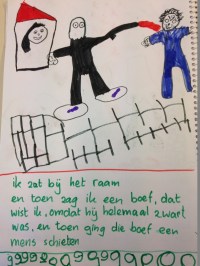 ik zat bij het raam
en toen zag ik een boef, dat
wist ik, omdat hij helemaal zwart
was, en toen ging die boef een
mens schieten